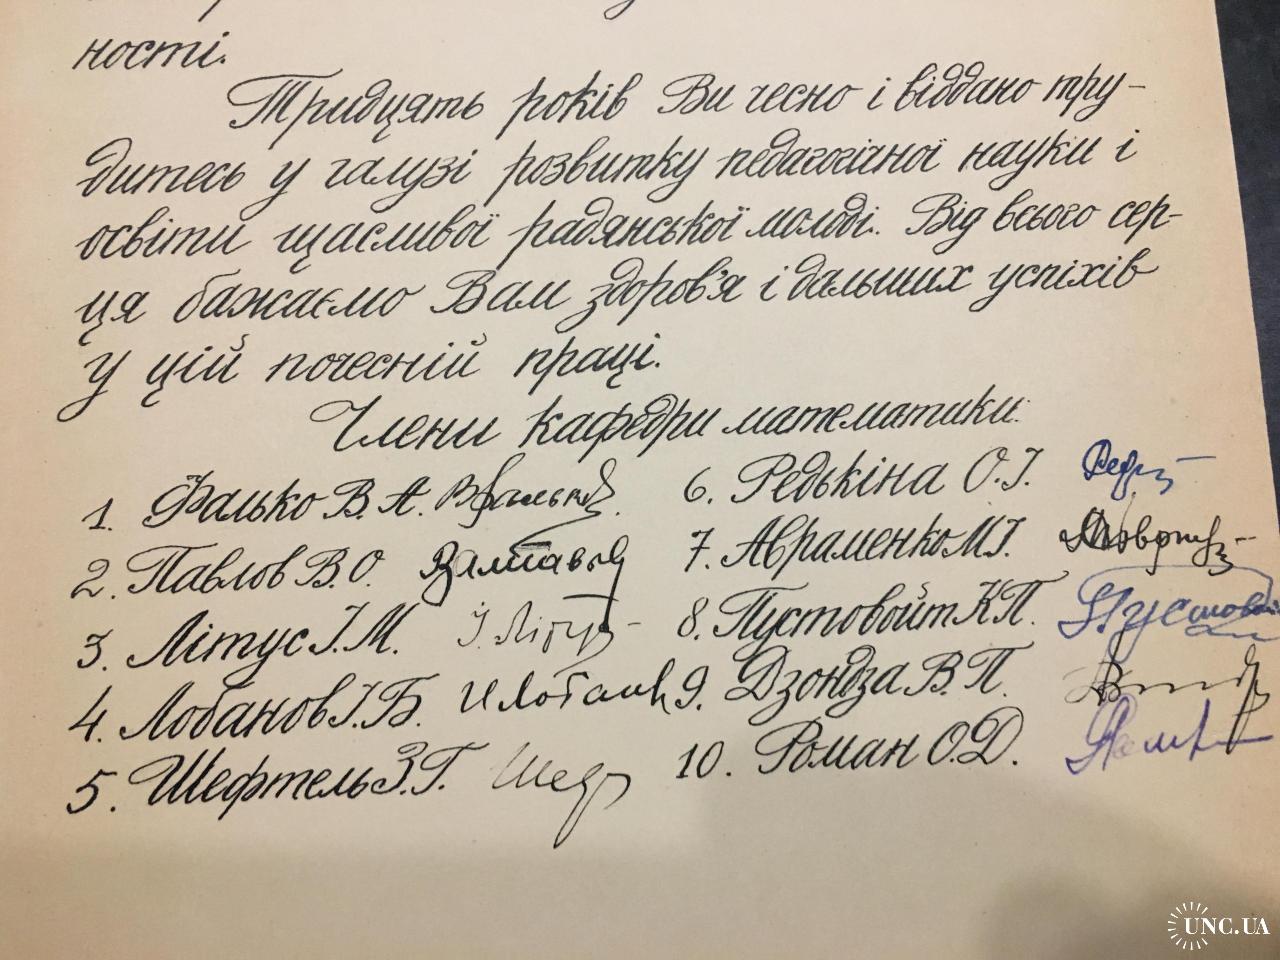 ності.
Тридцять років Ви чесно і віддано тру-
дитесь у галузі розвитку педагогічної науки і
освіти щасливої радянської молоді. Від всього сер-
ця бажаємо Вам здоров'я і дальших успіхів
у цій почесній праці.
Члени кафедри математики:
1. Фалько В. А.
2. Павлов В. О.
3. Літус І. М. І. Літус
4. Лобанов І. Б.
5. Шефтель З. Г. Шеф
6. Редькіна О. І.
7. Авраменко М. І.
8. Пустовойт К. П.
9. Дзондза В. П.
10. Роман О. Д.
UNC.UA